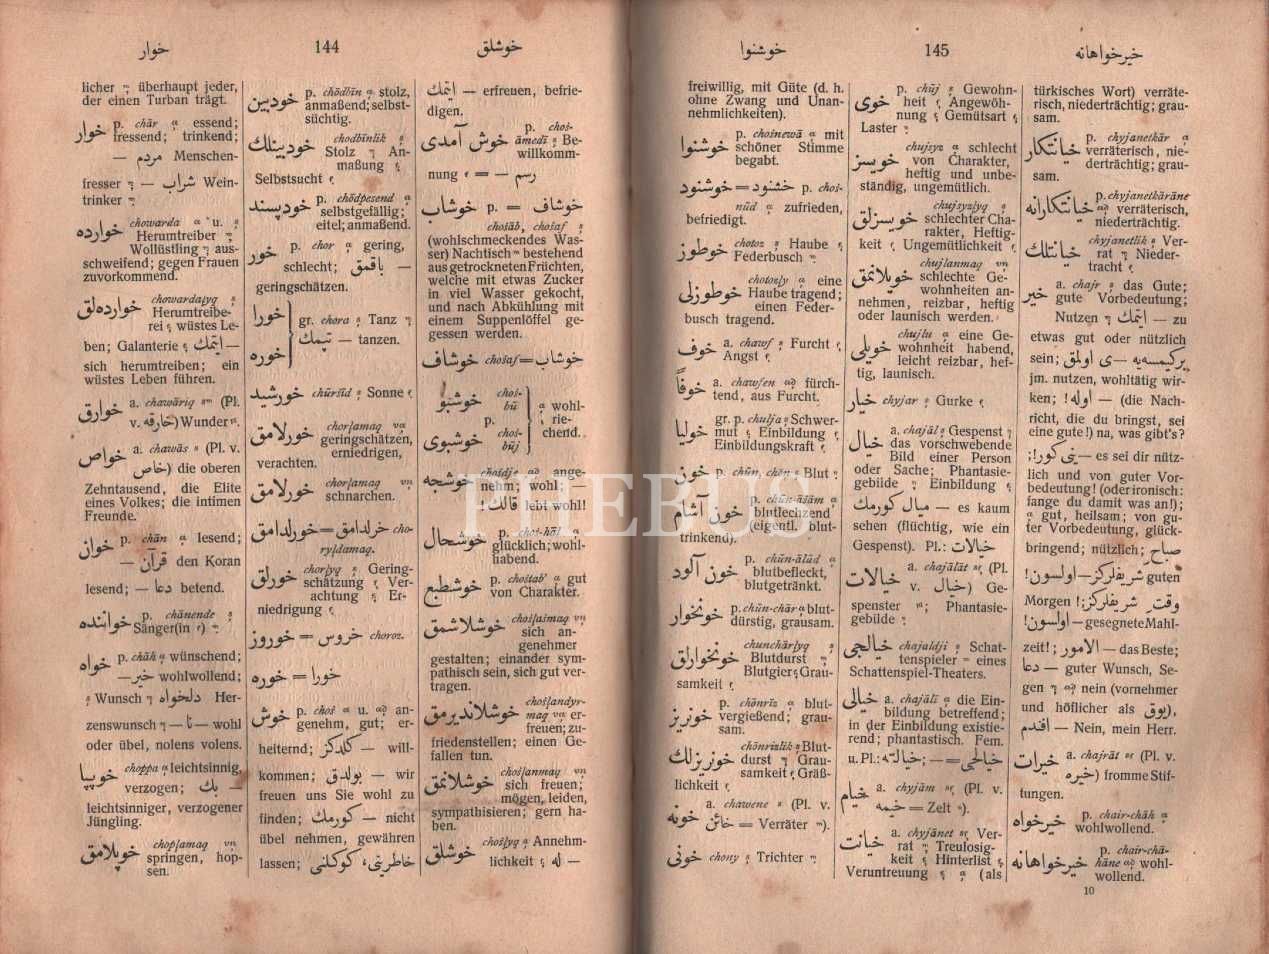 خوار 144 خوشلق
licher überhaupt jeder,
der einen Turban trägt.
خوار p. chār essend;
fressend; trinkend;
— مردم Menschen-
fresser — شراب Wein-
trinker
خوارده chowarda u.
Herumtreiber
Wollüstling aus-
schweifend; gegen Frauen
zuvorkommend.
خوارده‌لق chowardalyq
Herumtreibe-
rei wüstes Le-
ben; Galanterie ایتمك —
sich herumtreiben; ein
wüstes Leben führen.
خوارق a. chawāriq (Pl.
v. خارقه) Wunder
خواص a. chawās (Pl. v.
خاص) die oberen
Zehntausend, die Elite
eines Volkes; die intimen
Freunde.
خوان p. chān lesend;
— قرآن den Koran
lesend; — دعا betend.
خواننده p. chānende
Sänger(in)
خواه p. chāh wünschend;
— خیر wohlwollend;
Wunsch دلخواه Her-
zenswunsch — نا — wohl
oder übel, nolens volens.
خوپپا choppa leichtsinnig,
verzogen; — بك
leichtsinniger, verzogener
Jüngling.
خوپلامق choplamaq
springen, hop-
sen.
خودبین p. chodbīn stolz,
anmaßend; selbst-
süchtig.
خودبینلك chodbīnlik
Stolz An-
maßung
Selbstsucht
خودپسند p. chōdpesend
selbstgefällig;
eitel; anmaßend.
خور p. chor gering,
schlecht; باقمق —
geringschätzen.
خورا
خوره gr. chora Tanz
تپمك — tanzen.
خورشید chūršīd Sonne
خورلامق chorlamaq
geringschätzen,
erniedrigen,
verachten.
خورلامق chorlamaq
schnarchen.
خورلدامق = خرلدامق cho-
ryldamaq.
خورلق chorlyq Gering-
schätzung Ver-
achtung Er-
niedrigung
خوروز = خروس choroz.
خوره = خورا
خوش p. choš u. an-
genehm, gut; er-
heiternd; كلدكز — will-
kommen; بولدق — wir
freuen uns Sie wohl zu
finden; كورمك — nicht
übel nehmen, gewähren
lassen; خاطرینی، كوكلنی
ایتمك — erfreuen, befrie-
digen.
خوش آمدی p. choš-
āmedī Be-
willkomm-
nung = — رسم
خوشاب p. = خوشاف
chošāb, chošaf
(wohlschmeckendes Was-
ser) Nachtisch bestehend
aus getrockneten Früchten,
welche mit etwas Zucker
in viel Wasser gekocht,
und nach Abkühlung mit
einem Suppenlöffel ge-
gessen werden.
خوشاف chošaf = خوشاب
خوشبو choš-
bū
p.
خوشبوی choš-
būj
wohl-
rie-
chend.
خوشجه chošdje ange-
nehm; wohl; —
قالك! lebt wohl!
خوشحال p. choš-hāl
glücklich; wohl-
habend.
خوشطبع p. choštab' gut
von Charakter.
خوشلاشمق chošlašmaq
sich an-
genehmer
gestalten; einander sym-
pathisch sein, sich gut ver-
tragen.
خوشلاندیرمق chošlandyr-
maq er-
freuen; zu-
friedenstellen; einen Ge-
fallen tun.
خوشلانمق chošlanmaq
sich freuen;
mögen, leiden,
sympathisieren; gern ha-
ben.
خوشلق chošlyq Annehm-
lichkeit — له
خوشنوا 145 خیرخواهانه
freiwillig, mit Güte (d. h.
ohne Zwang und Unan-
nehmlichkeiten).
خوشنوا p. chošnewā mit
schöner Stimme
begabt.
خوشنود = خشنود p. choš-
nūd zufrieden,
befriedigt.
خوطوز chotoz Haube
Federbusch
خوطوزلی chotozly eine
Haube tragend;
einen Feder-
busch tragend.
خوف a. chawf Furcht
Angst
خوفاً a. chawfen fürch-
tend, aus Furcht.
خولیا gr. p. chulja Schwer-
mut Einbildung
Einbildungskraft
خون p. chūn, chōn Blut
خون آشام p. chūn-āšām
blutlechzend
(eigentl. blut-
trinkend).
خون آلود p. chūn-ālūd
blutbefleckt,
blutgetränkt.
خونخوار p. chūn-chār blut-
dürstig, grausam.
خونخوارلق chunchārlyq
Blutdurst
Blutgier Grau-
samkeit
خونریز p. chōnrīz blut-
vergießend; grau-
sam.
خونریزلك chōnrizlik Blut-
durst Grau-
samkeit Gräß-
lichkeit
خونه a. chawene (Pl. v.
خائن = Verräter).
خونی chony Trichter
خوی p. chūj Gewohn-
heit Angewöh-
nung Gemütsart
Laster
خویسز chujsyz schlecht
von Charakter,
heftig und unbe-
ständig, ungemütlich.
خویسزلق chujsyzlyq
schlechter Cha-
rakter, Heftig-
keit Ungemütlichkeit
خویلانمق chujlanmaq
schlechte Ge-
wohnheiten an-
nehmen, reizbar, heftig
oder launisch werden.
خویلی chujlu eine Ge-
wohnheit habend,
leicht reizbar, hef-
tig, launisch.
خیار chyjar Gurke
خیال a. chajāl Gespenst
das vorschwebende
Bild einer Person
oder Sache; Phantasie-
gebilde Einbildung
خیال میال كورمك — es kaum
sehen (flüchtig, wie ein
Gespenst). Pl.: خیالات
خیالات a. chajālāt (Pl.
v. خیال) Ge-
spenster; Phantasie-
gebilde
خیالجی chajaldji Schat-
tenspieler = eines
Schattenspiel-Theaters.
خیالی a. chajālī die Ein-
bildung betreffend;
in der Einbildung existie-
rend; phantastisch. Fem.
u. Pl.: خیالیه; — = خیالجی
خیام a. chyjām (Pl. v.
خیمه = Zelt).
خیانت a. chyjānet Ver-
rat Treulosig-
keit Hinterlist
Veruntreuung (als
türkisches Wort) verräte-
risch, niederträchtig; grau-
sam.
خیانتكار p. chyjanetkār
verräterisch, nie-
derträchtig; grau-
sam.
خیانتكارانه p. chyjanetkārāne
verräterisch,
niederträchtig.
خیانتلك chyjanetlik Ver-
rat Nieder-
tracht
خیر a. chajr das Gute;
gute Vorbedeutung;
Nutzen ایتمك — zu
etwas gut oder nützlich
sein; بركیمسه‌یه — ی اولمق
jm. nutzen, wohltätig wir-
ken; اوله! — (die Nach-
richt, die du bringst, sei
eine gute!) na, was gibt's?
— ینی كورا!; es sei dir nütz-
lich und von guter Vor-
bedeutung! (oder ironisch:
fange du damit was an!);
gut, heilsam; von gu-
ter Vorbedeutung, glück-
bringend; nützlich; صباح
شریفلركز — اولسون! guten
Morgen!; وقت شریفلركز
— اولسون! gesegnete Mahl-
zeit!; الامور — das Beste;
دعا — guter Wunsch, Se-
gen nein (vornehmer
und höflicher als یوق),
افندم — Nein, mein Herr.
خیرات a. chajrāt (Pl. v.
خیره) fromme Stif-
tungen.
خیرخواه p. chair-chāh
wohlwollend.
خیرخواهانه p. chair-chā-
hāne wohl-
wollend.
10
PHEBUS